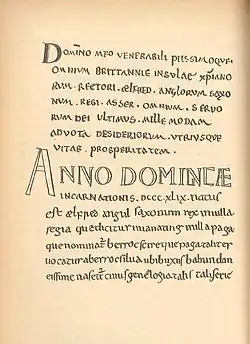 DOMINO MEO VENERABILI PIISSIMOQUE
OMNIUM BRITTANNIE INSULAE XPIANO
RUM. RECTORI. ÆLFRED. ANGLORUM SAXO
NUM. REGI. ASSER. OMNIUM. SERVO
RUM DEI ULTIMUS. MILLE MODAM
ADVOTA DESIDERIORUM. UTRIUSQUE
VITAE. PROSPERITATEM.
ANNO DOMINICÆ
INCARNATIONIS. DCCC.XLIX. natus
est ælfred angul saxonum rex in uilla
regia que dicitur uuanating in illa paga
que nominatᷣ berrocscire que paga taliter
uocatur a berroc silua ubi buxus habundan
tissime nascitᷣ cuius genelogia talis talis serie